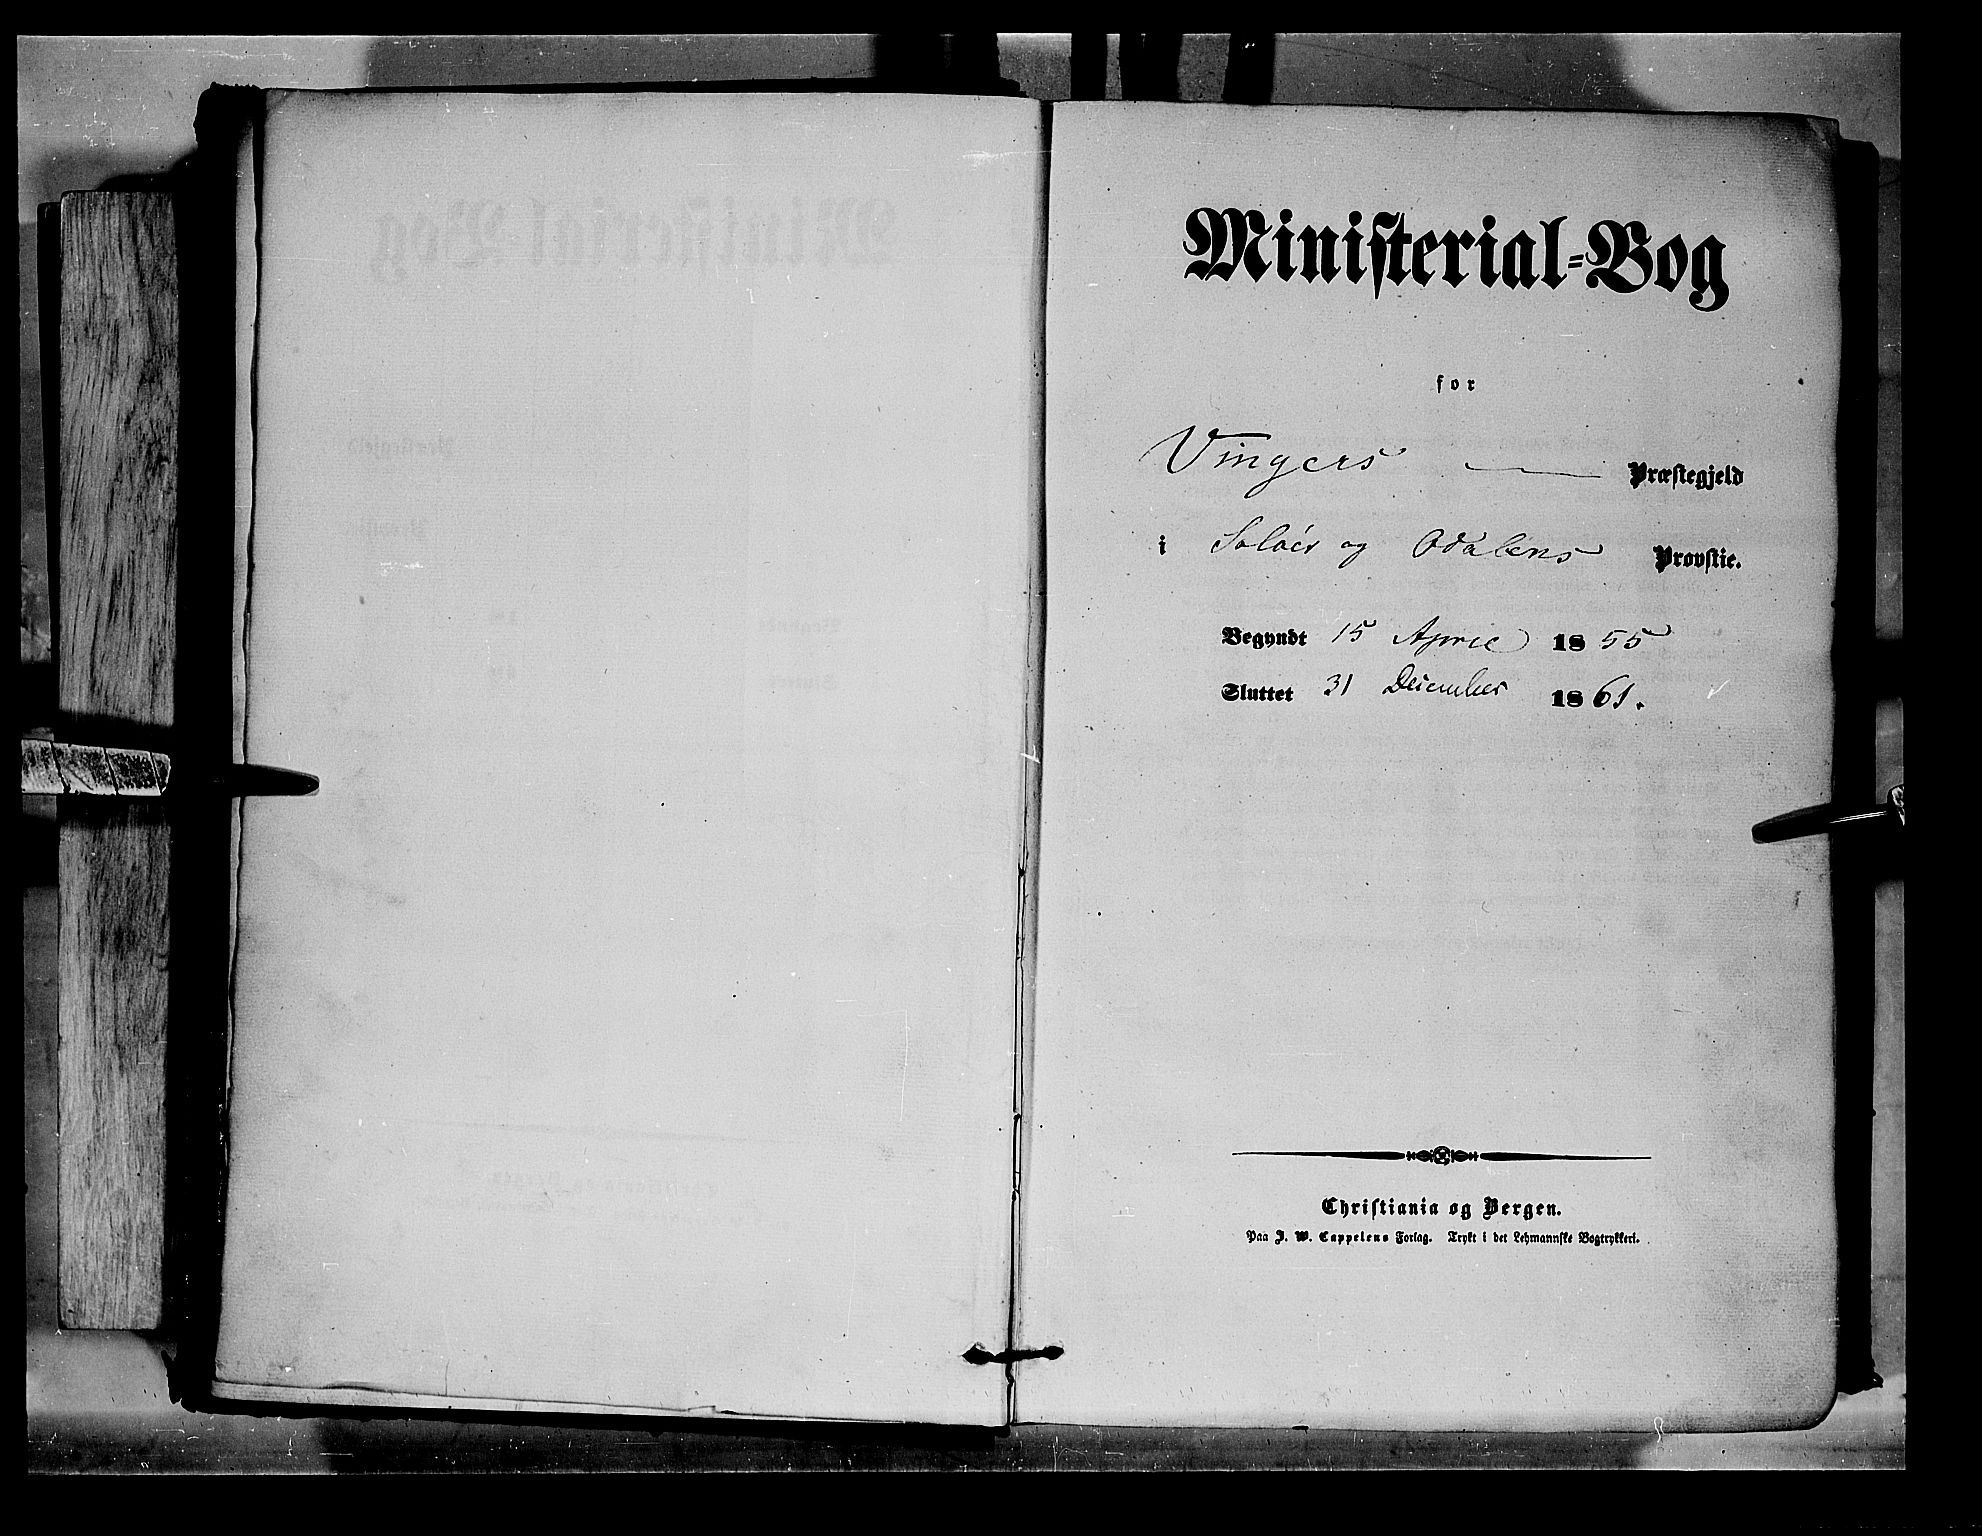 Ministerial-Bog
for
Vingers Præstegjeld
i Soløer og Odalens Provstie.
Begyndt 15 April 1855
Sluttet 31 December 1861.
Christiania og Bergen.
Paa J. W. Cappelens Forlag. Trykt i det Lehmannske Bogtrykkeri.